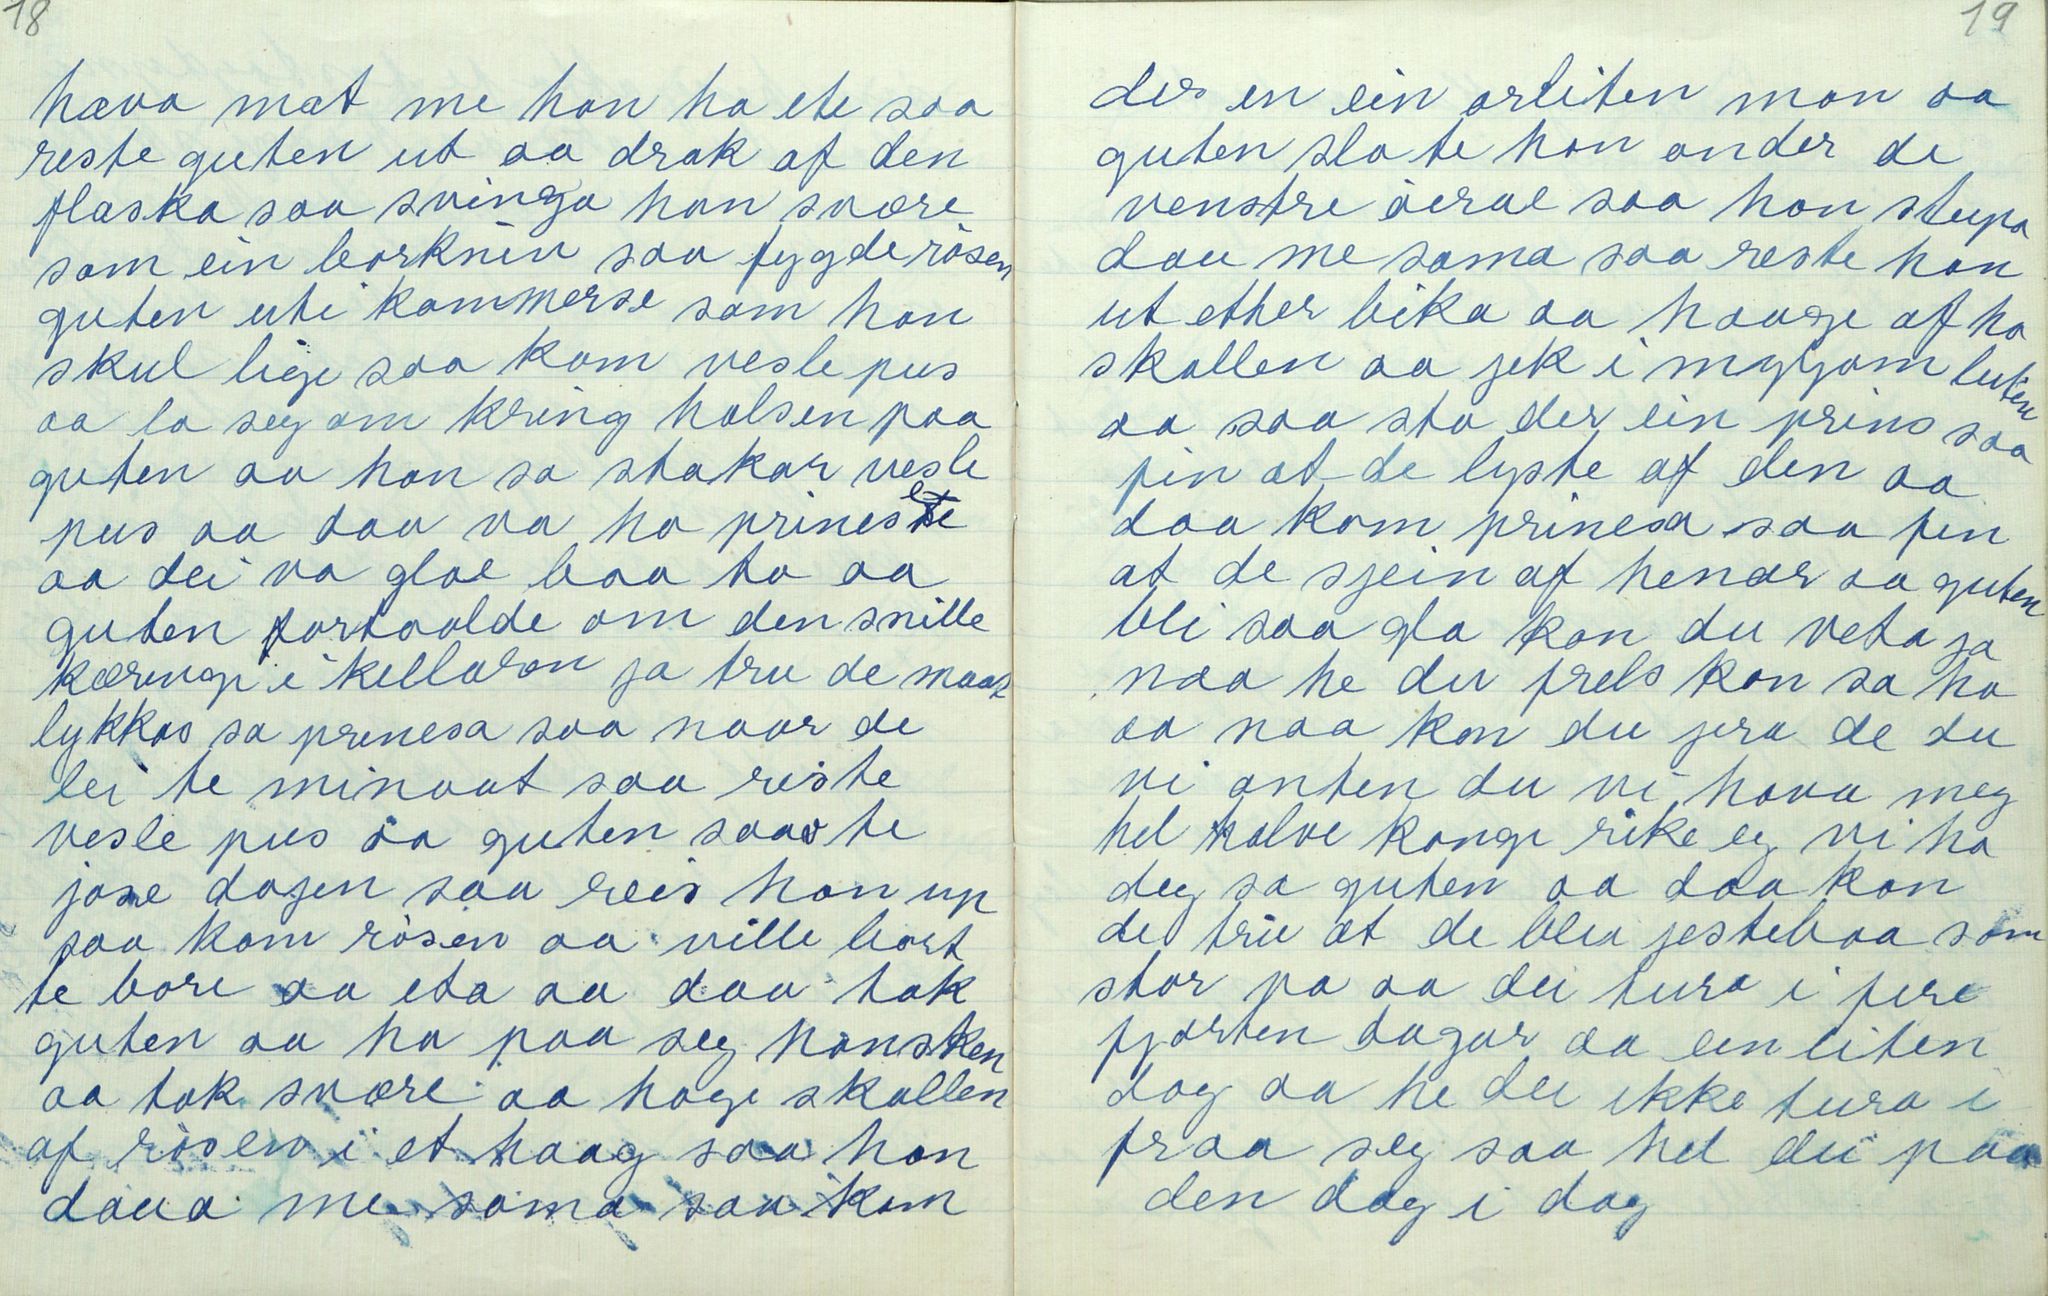 18
hæva mat me han ha ete saa
reste guten ut aa drak af den
flaska saa svinga han svære
som ein borknin saa fygde rösen
guten uti kammerse som han
skul lige saa kom vesle pus
aa la seg om kring halsen paa
guten aa han sa stakar vesle
pus aa daa va ho prinesse
aa dei va glae baa to aa
guten fortaalde om den snille
kæringi i kellaron ja tru de maat
lykkas sa prinesa saa naar de
lei te minaat saa reiste
vesle pus aa guten saav te
jose dagen saa reis han up
saa kom rösen aa ville bort
te bore aa eta aa daa tok
guten aa ha paa seg hansken
aa tok svære aa hoge skallen
af rösen i et haag saa han
daua me sama saa kom
19
der en ein arliten man aa
guten slo te han onder de
venstre öerae saa han stupa
dau me sama saa reste han
ut etter bika aa haage af ho
skallen aa jek i mygjom luten
aa saa sto der ein prins saa
fin at de lyste af den aa
daa kom prinesa saa fin
at de sjein af henar aa guten
bli saa gla kan du veta ja
naa he du frels kan sa ho
aa naa kan du jera de du
vi anten du vi hava meg
hel halve konge rike eg vi ha
deg sa guten aa daa kan
de tru at de blei jestebaa som
stor va aa dei tura i fire
fjorten dagar aa ein liten
dag aa he dei ikke tura i
fraa seg saa hel dei paa
den dag i dag